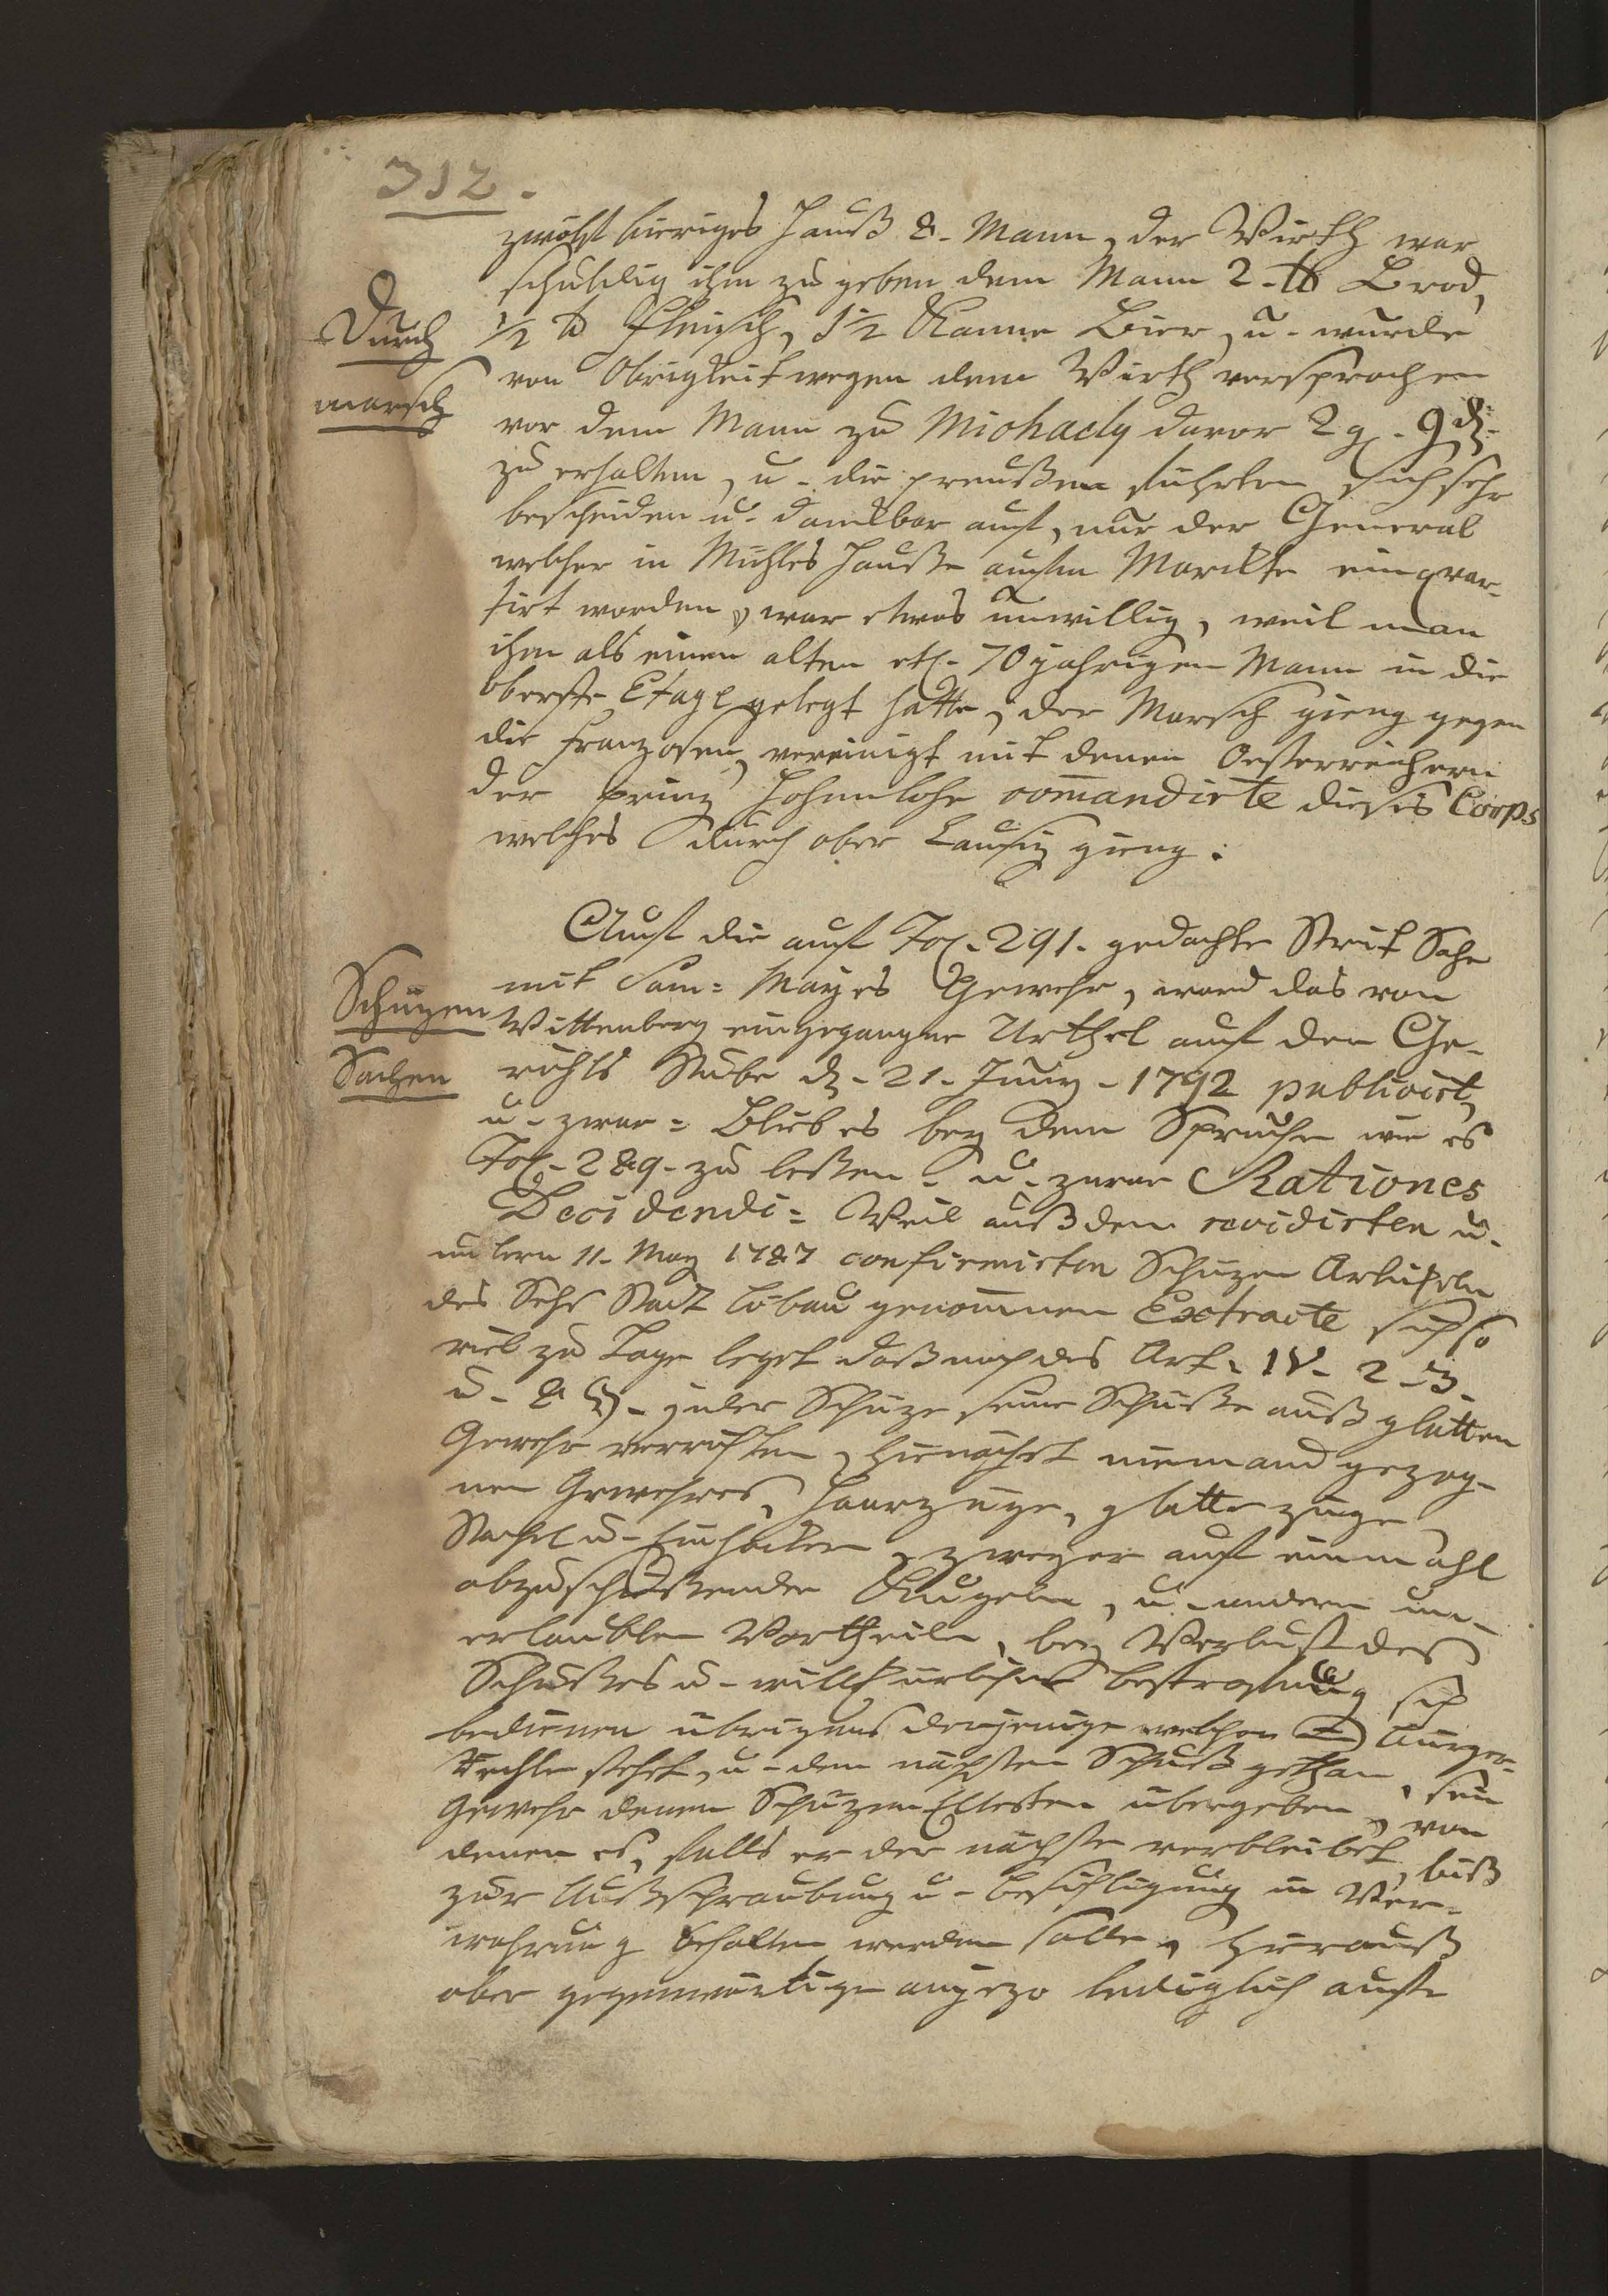 312.
zwölf bieriges Hauß 8. Mann, der Wirth war
schuldig ihm zu geben dem Mann 2. ℔ Brod,
Durch
1/2 ℔ Fleisch, 1 1/2 Kanne Bier, u. wurde
von Obrigkeit wegen dem Wirth versprochen
marsch
vor dem Mann zu Michaely davor 2 g. 9 d.
zu erhalten, u. die preußen führten sich sehr
bescheiden u. dankbar auf, nur der General
welcher in Mühles Hauße aufm Markte einqvar-
tirt worden, war etwas unwillig, weil man
ihm als einen alten etl. 70 jahrigen Mann in die
oberste Etage gelegt hatte, der Marsch gieng gegen
die Franzosen, vereinigt mit denen Oesterreichern
der prinz Hohenlohe comandirte dieses Corps
welches durch ober Lausiz gieng.
Auf die auf Fol. 291. gedachte Streit Sache
mit Sam: Mayes Gewehr, ward das von
Schüzen
Wittenberg eingegangne Urthel auf der Ge-
Sachen
richts Stube d. 21. Juny. 1792 publicirt,
u. zwar: Blieb es bey dem Spruche wie es
Fol. 289. zu leßen. u. zwar Rationes
Decidendi: Weil auß dem revidirten u.
untern 11. May 1787 confirmirten Schüzen Articheln
der Sechs Stadt Löbau genommen Extracte sich so
viel zu Tage leget daß nach des Art. IV. 2. 3.
u. 8 §. jeder Schüze seine Schüße auß glatten
Gewehr verrichten, hienächst niemand gezog-
nen Gewehres, Haarzüge, glatte züge
Stachel u. , zweyer auf einmahl
abzuschüßender Kugeln, u. andern un-
erlaubten Vortheile, bey Verlust des
Schußes u. willkürlicher bestrafung sich
bedienen übrigens derjenige welcher Bürger-
Rechte stehet, u. den nächsten Schuß gethan, sein
Gewehr denen Schüzen Eltesten übergeben, von
denen es, falls er der nächste verbleibet, biß
zur Außschraubung u. besichtigung in Ver-
wahrung behalten werden solle, hierauß
aber gegenwärtige anjezo lediglich aufs